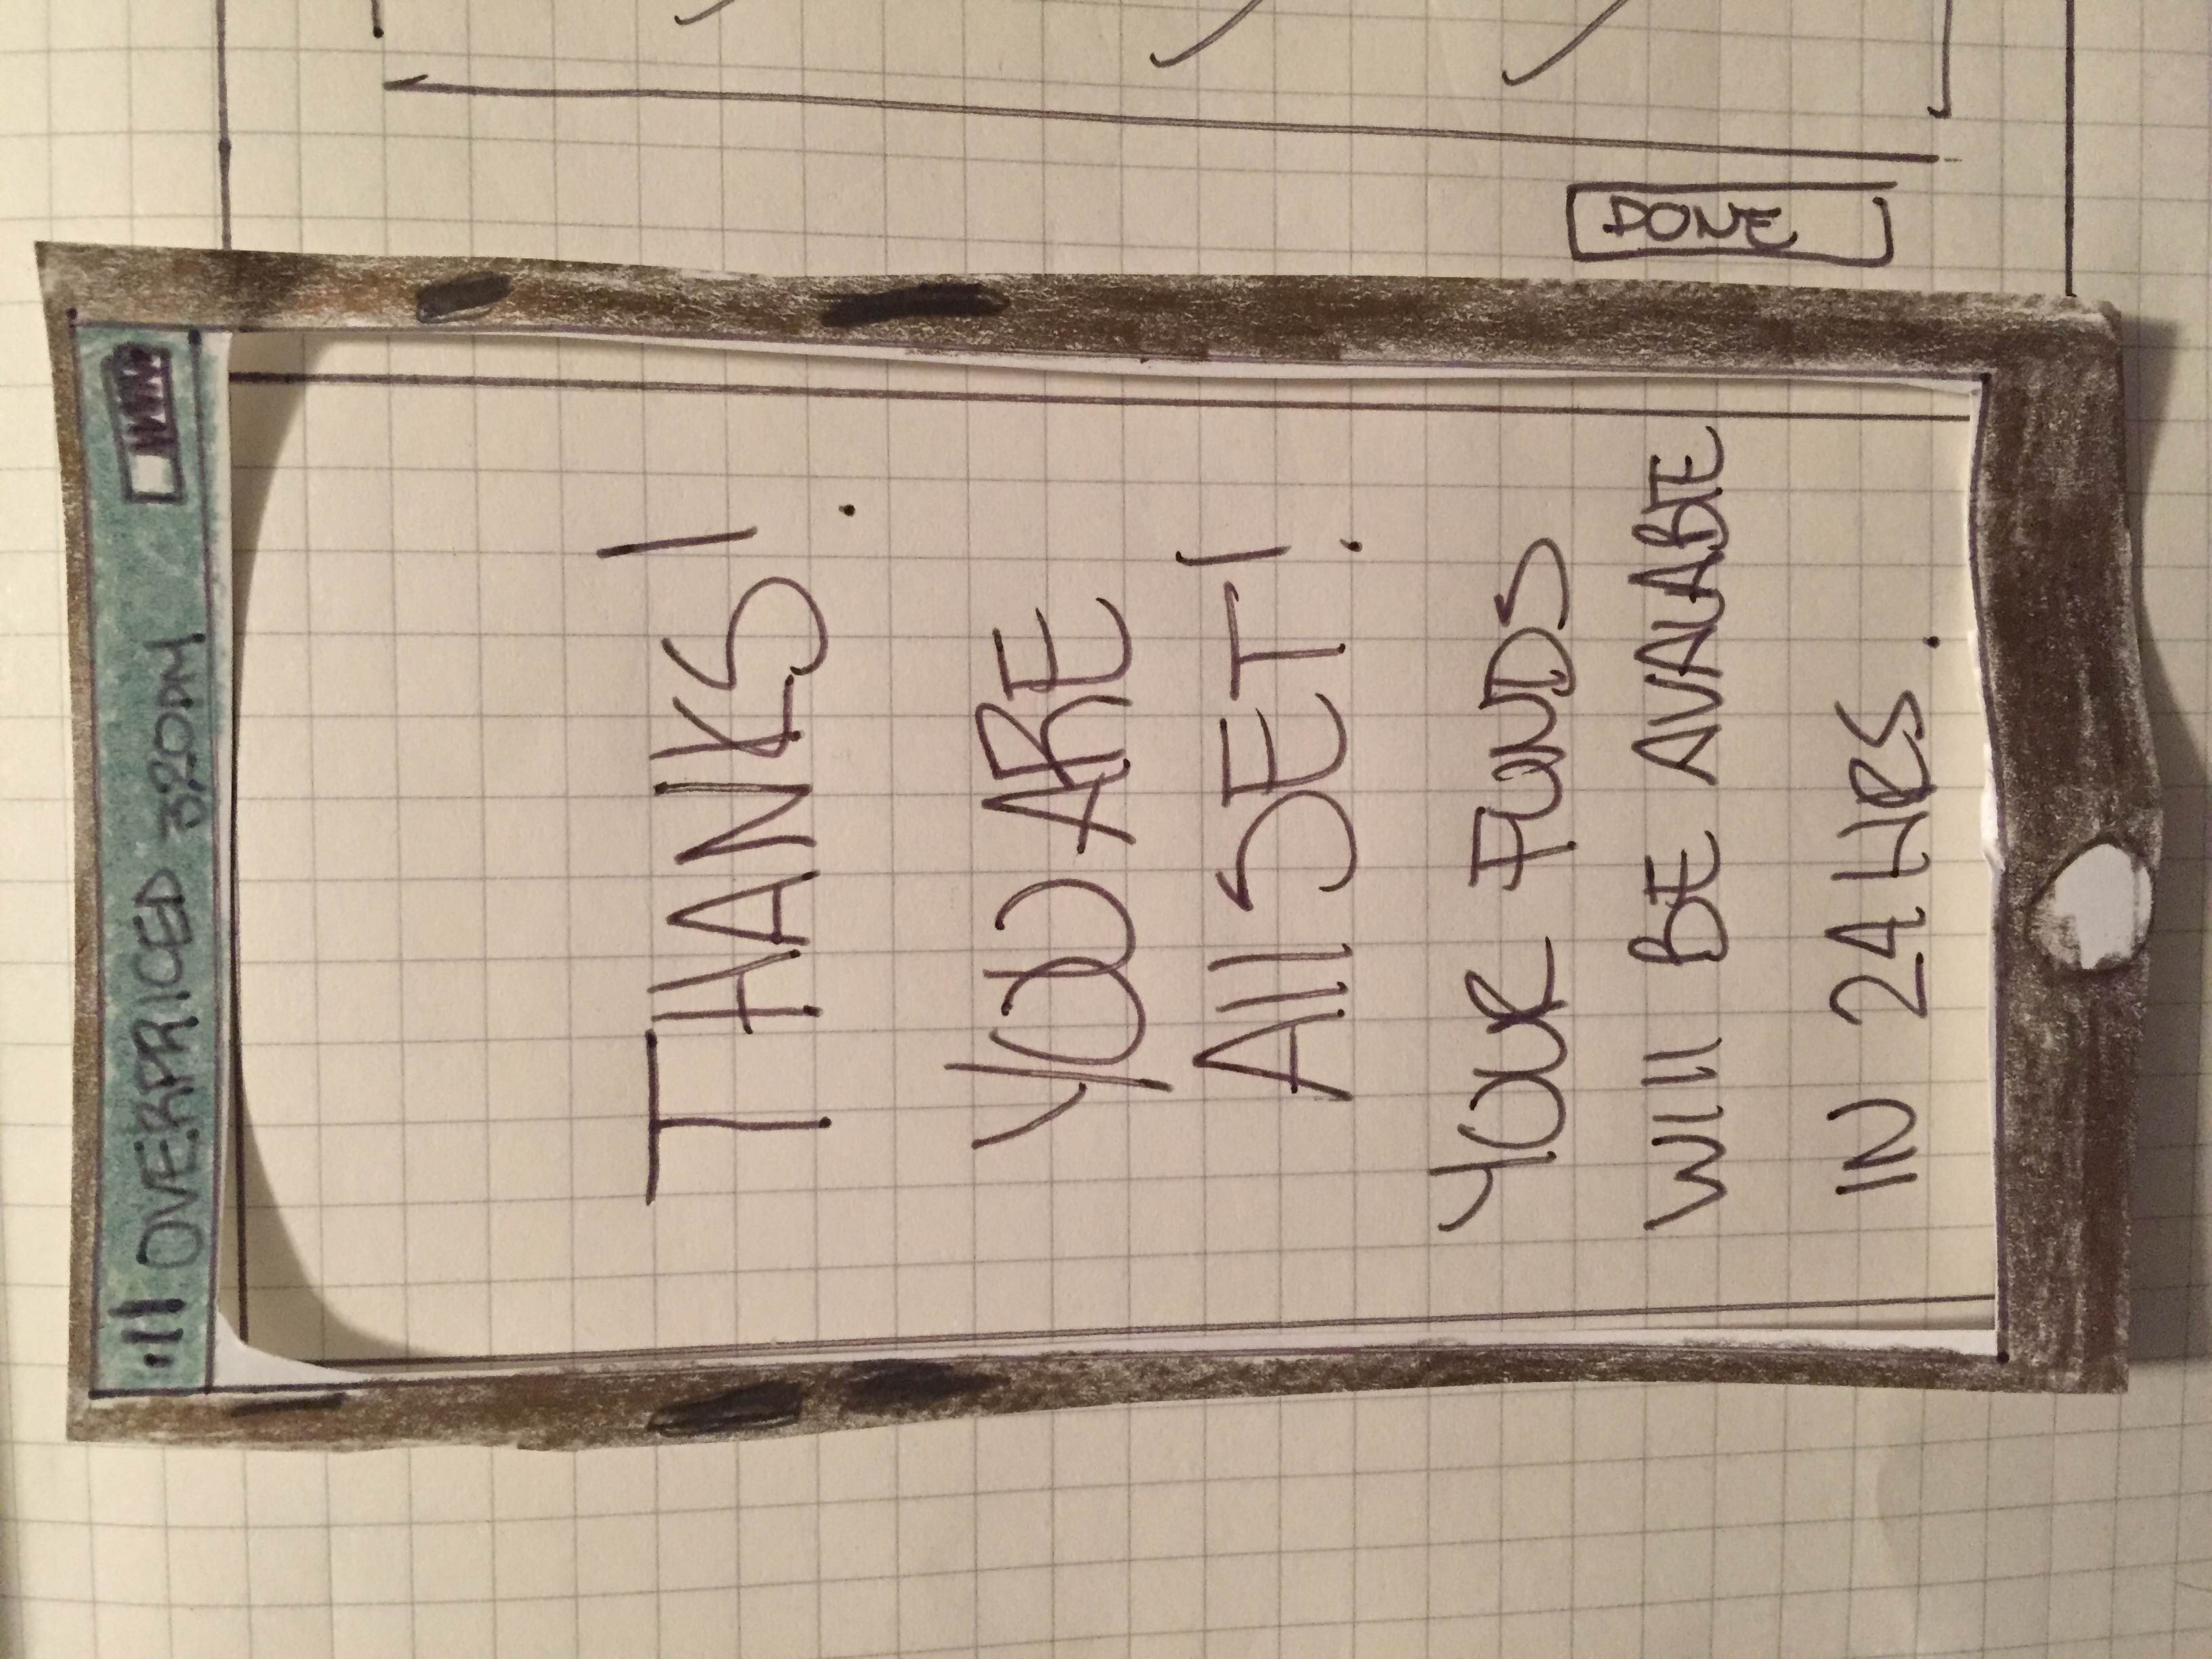 OVERPRICED 320PM
THANKS!
YOU ARE
All SET!
YOUR FUNDS
WIll BE AVALABLE
IN 24 HRS.
DONE